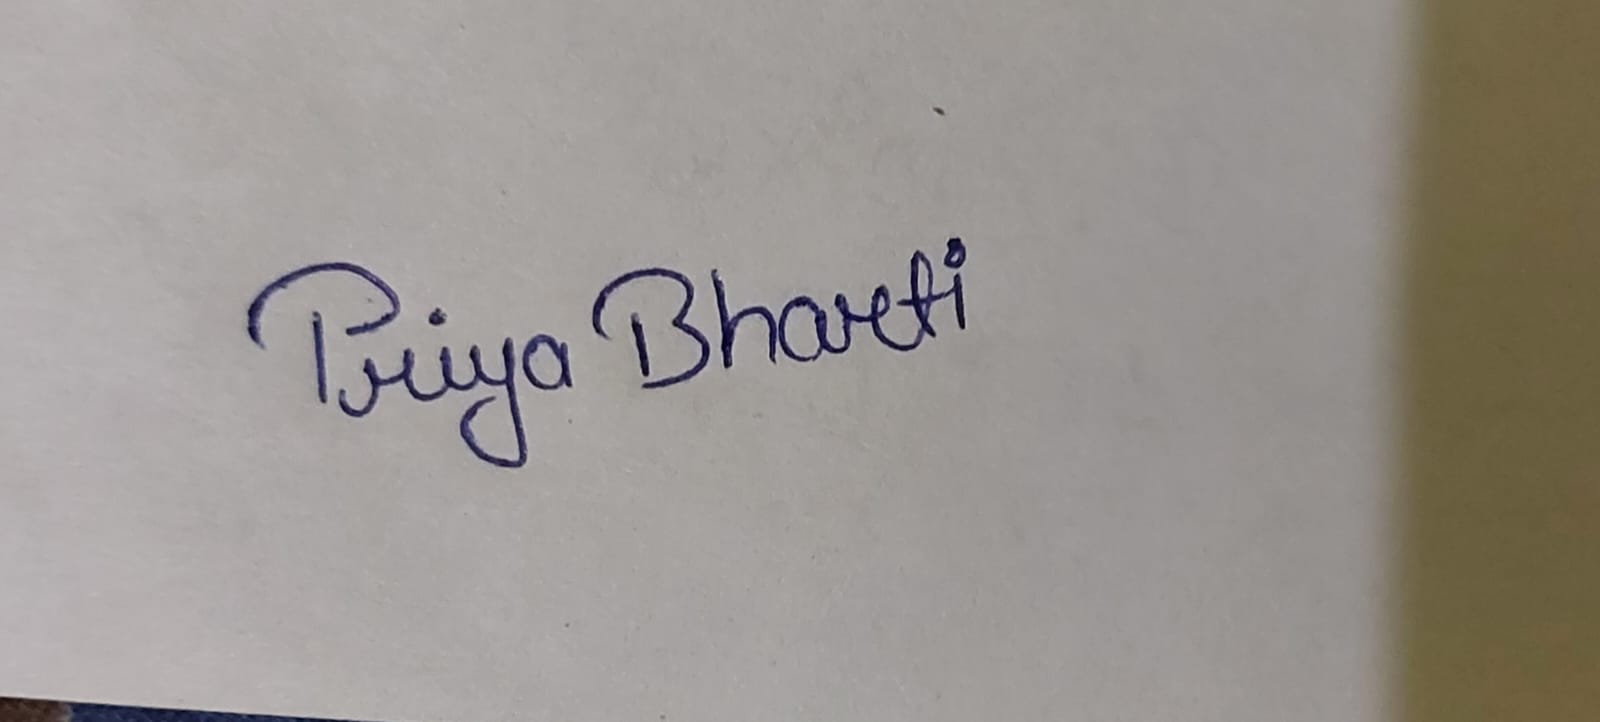 Priya Bharti